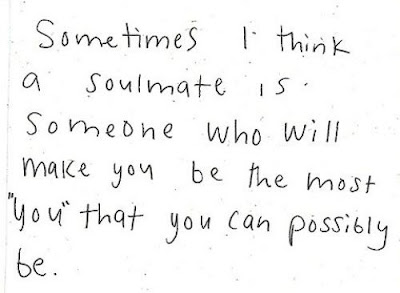 Sometimes I think
a soulmate is
someone who will
make you be the most
"you" that you can possibly
be.